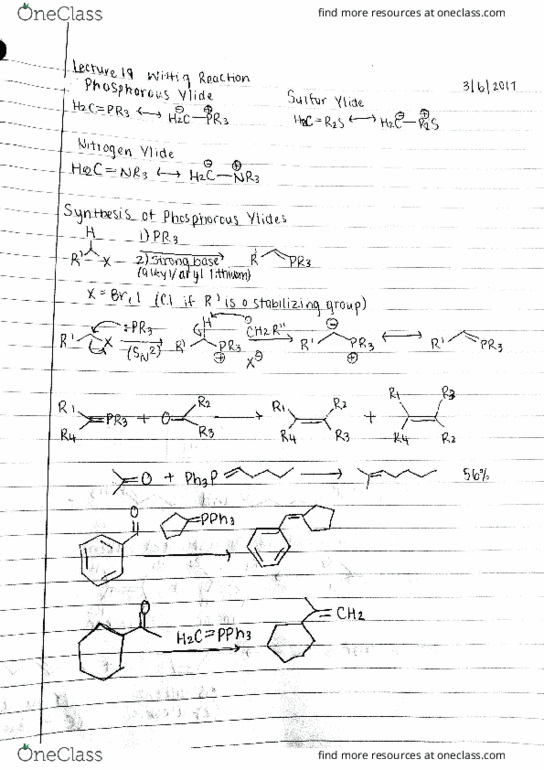 OneClass
find more resources at oneclass.com
Lecture 19 Wittig Reaction
3/6/2017
Phosphorous Ylide
Sulfur Ylide
H2C=PR3 ⟷ H2C⊖—PR3⊕
H2C=R2S ⟷ H2C⊖—R2S⊕
Nitrogen Ylide
H2C=NR3 ⟷ H2C⊖—NR3⊕
Synthesis of Phosphorous Ylides
H
1) PR3
R' X
2) Strong base
R' PR3
(alkyl/aryl lithium)
X = Br, I (Cl if R' is a stabilizing group)
R' X :PR3 (SN2) R' H PR3 ⊕ X⊖ ⊖CH2R'' R' ⊖ PR3 ⊕ ⟷ R' PR3
R1 R4 =PR3 + O= R2 R3 → R1 R4 R2 R3 + R1 R4 R3 R2
=O + Ph3P → 56%
O =PPh3
O H2C=PPh3 =CH2
OneClass
find more resources at oneclass.com